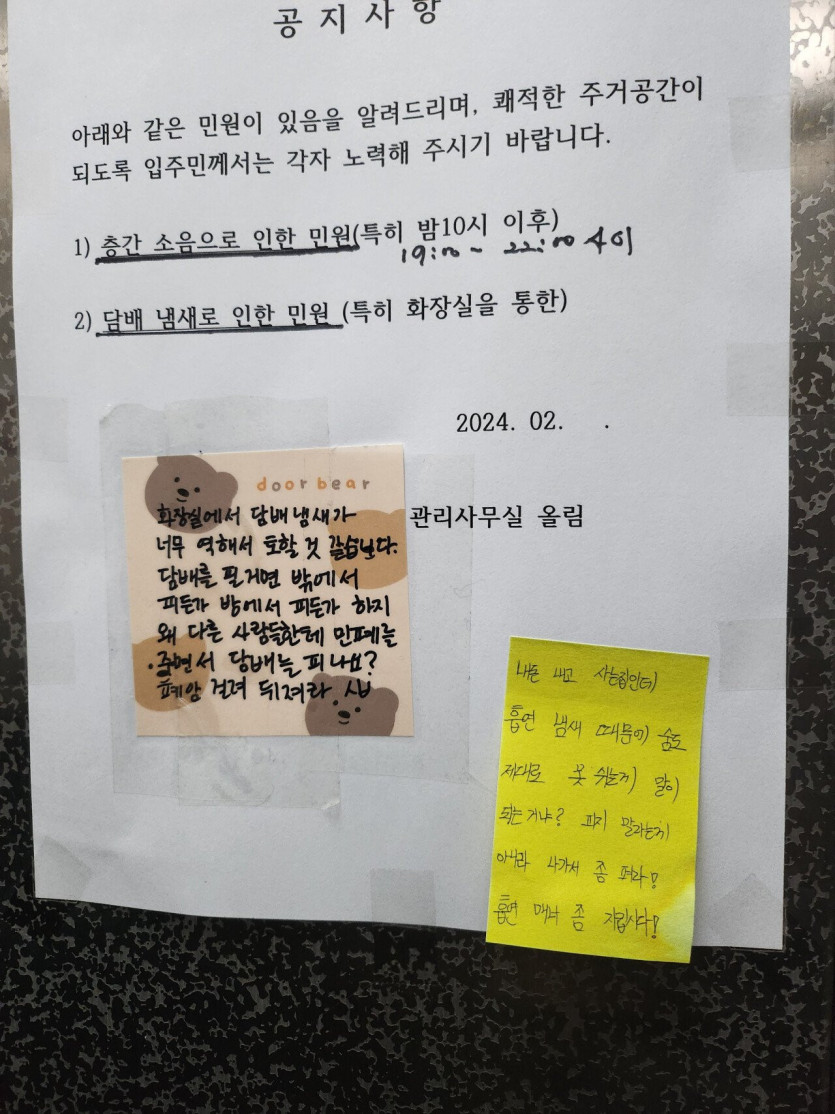 공 지 사 항
아래와 같은 민원이 있음을 알려드리며, 쾌적한 주거공간이
되도록 입주민께서는 각자 노력해 주시기 바랍니다.
1) 층간 소음으로 인한 민원(특히 밤10시 이후)
19:00~ 22:00 사이
2) 담배 냄새로 인한 민원 (특히 화장실을 통한)
2024. 02. .
관리사무실 올림
door bear
화장실에서 담배 냄새가
너무 역해서 토할 것 같습니다.
담배를 필거면 밖에서
피든가 방에서 피든가 하지
왜 다른 사람들한테 민폐를
주면서 담배를 피나요?
폐암 걸려 뒤져라
내돈 내고 사는집인데
흡연 냄새 때문에 숨도
제대로 못 쉬는게 말이
되는거냐? 피지 말라는게
아니라 나가서 좀 펴라!
흡연 매너 좀 지킵시다!